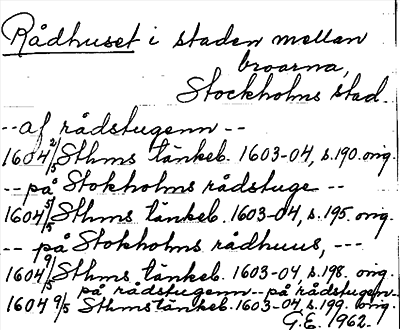 Rådhuset i staden mellan
broarna,
Stockholms stad.
-- af rådstugenn --
1604 2/5 Sthms tänkeb. 1603-04, s. 190. orig.
-- på Stokholms rådstuge --
1604 5/5 Sthms tänkeb. 1603-04, s. 195. orig.
-- på Stokholms rådhuus, ---
1604 9/5 Sthms tänkeb. 1603-04 s. 198. orig.
på rådstugenn -- på rådstugenn --
1604 9/5 Sthms tänkeb. 1603-04. s. 199. orig.
G.E. 1962.